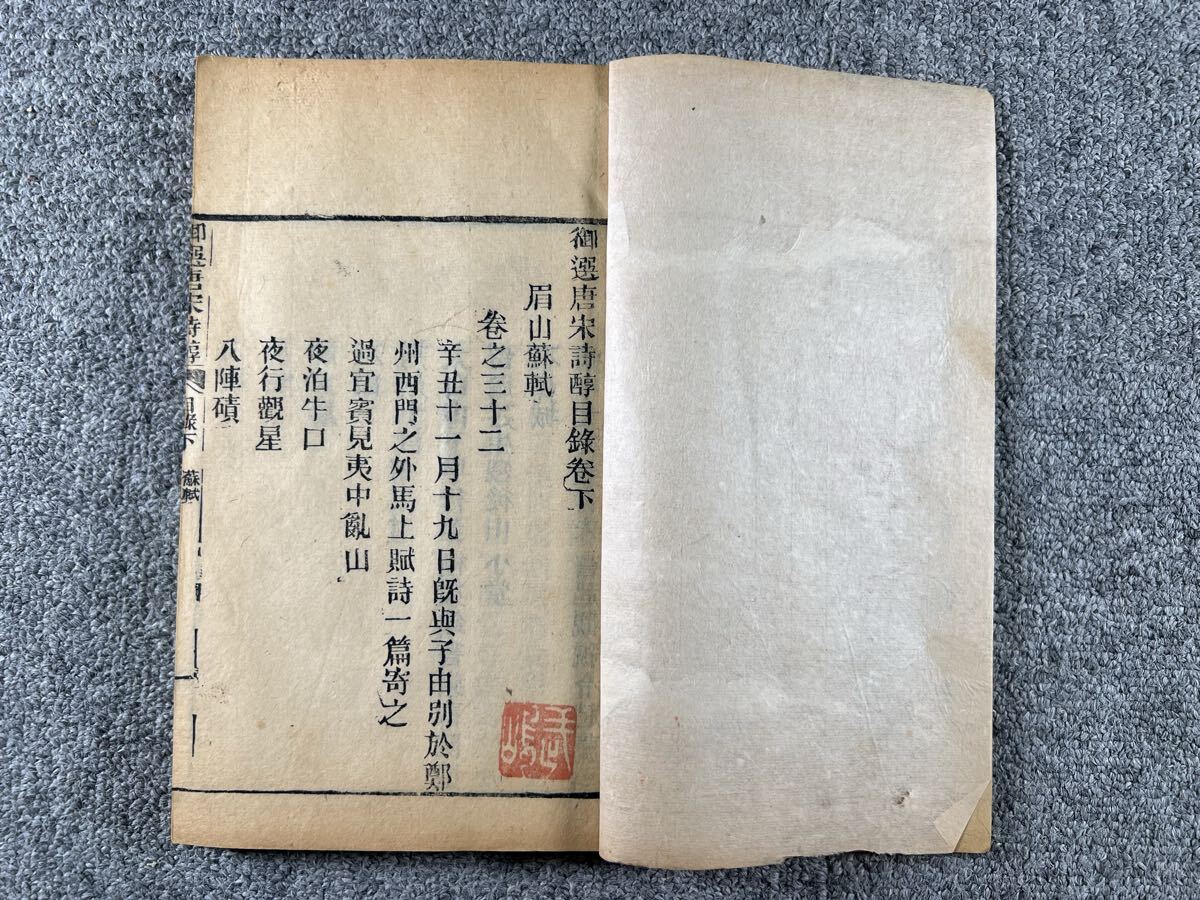 御選唐宋詩醇目錄卷下
眉山蘇軾
卷之三十二
辛丑十一月十九日旣與子由別於鄭
州西門之外馬上賦詩一篇寄之
過宜賓見夷中亂山
夜泊牛口
夜行觀星
八陣磧
御選唐宋詩醇 目錄下 蘇軾